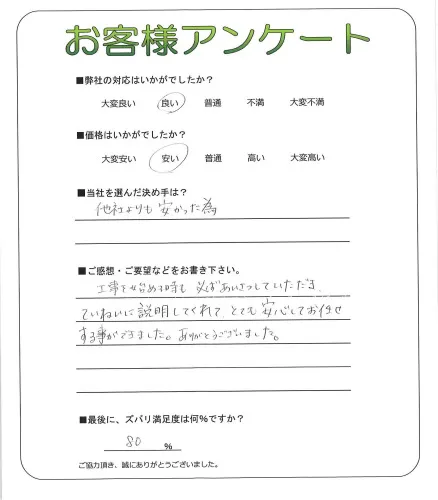 お客様アンケート
■弊社の対応はいかがでしたか？
大変良い 良い 普通 不満 大変不満
■価格はいかがでしたか？
大変安い 安い 普通 高い 大変高い
■当社を選んだ決め手は？
他社よりも安かった為
■ご感想・ご要望などをお書き下さい。
工事を始める時も必ずあいさつしていただき、
ていねいに説明してくれてとても安心してお任せ
する事ができました。ありがとうございました。
■最後に、ズバリ満足度は何%ですか？
80 %
ご協力頂き、誠にありがとうございました。